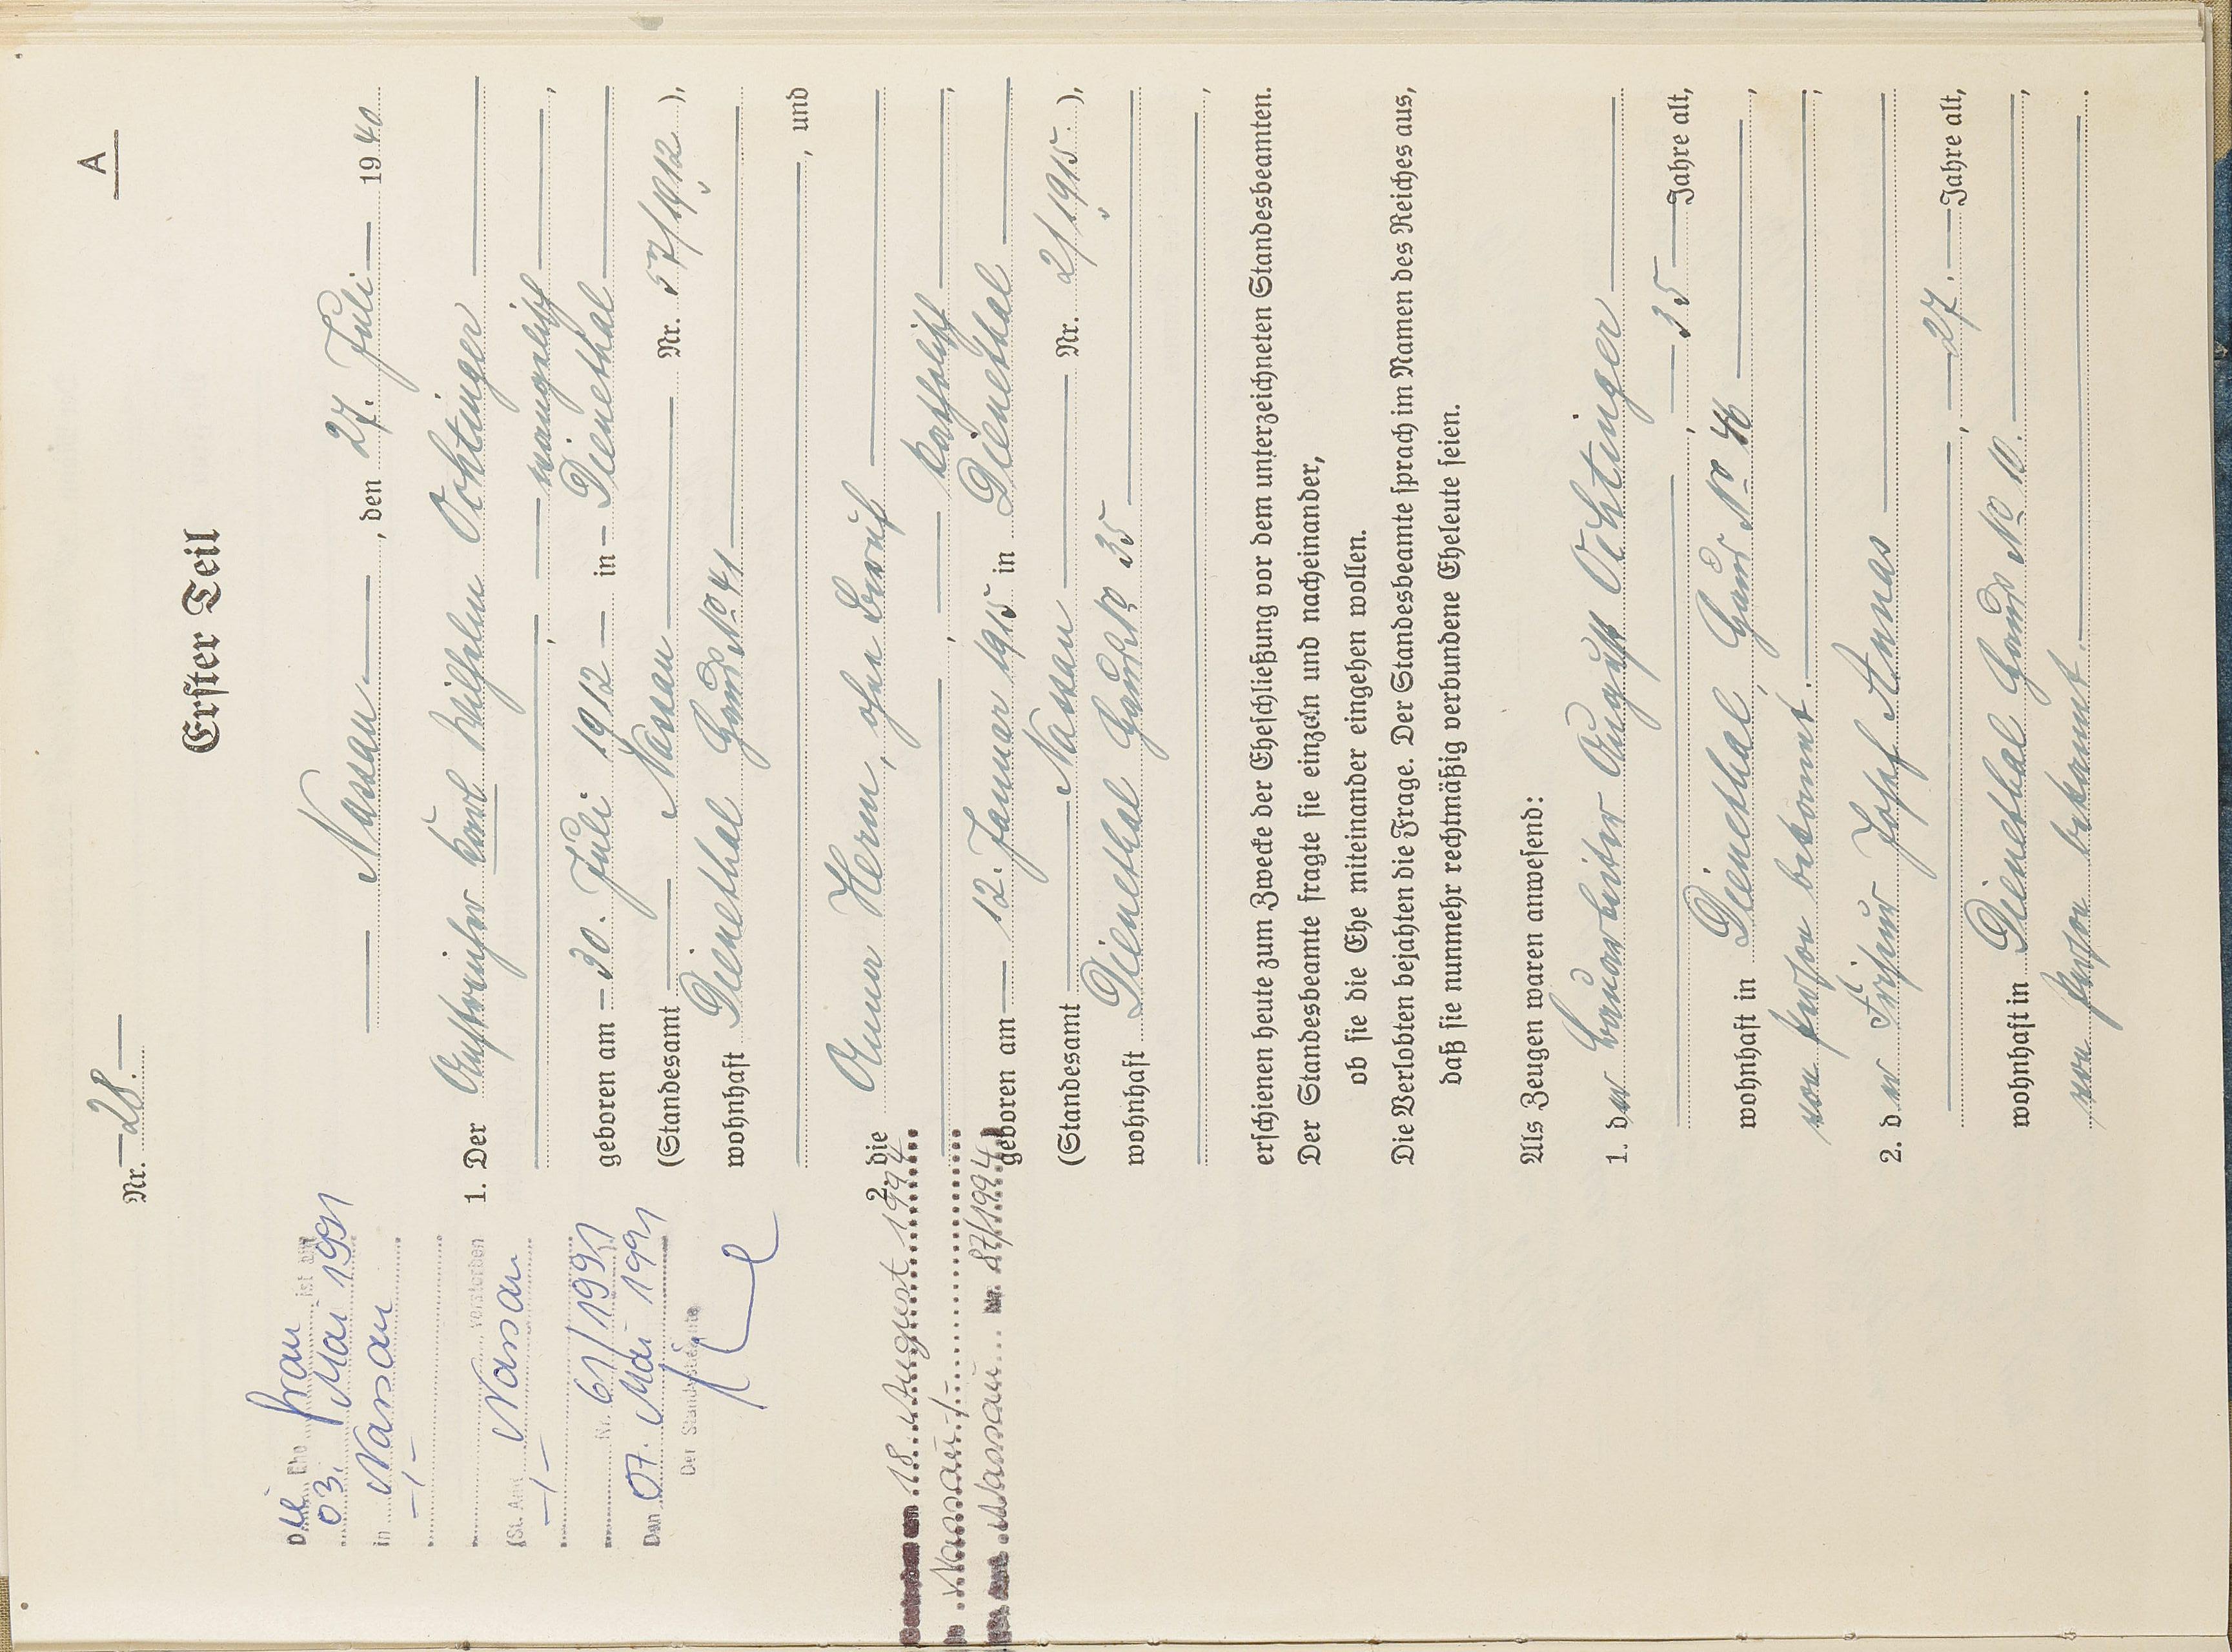 A
Nr. 28.
Erster Teil
Nassau, den 27. Juli 1940
1. Der Anstreicher Karl Wilhelm Ochtinger
, evangelisch,
geboren am 30. Juli 1912 in Dienethal
(Standesamt Nassau Nr. 57/1912),
wohnhaft Dienethal Haus No 41
, und
2. die Anna Herm, ohne Beruf
, katholisch,
geboren am 12. Januar 1915 in Dienethal
(Standesamt Nassau Nr. 2/1915.),
wohnhaft Dienethal Haus No 35
,
erschienen heute zum Zwecke der Eheschließung vor dem unterzeichneten Standesbeamten.
Der Standesbeamte fragte sie einzeln und nacheinander,
ob sie die Ehe miteinander eingehen wollen.
Die Verlobten bejahten die Frage. Der Standesbeamte sprach im Namen des Reiches aus,
daß sie nunmehr rechtmäßig verbundene Eheleute seien.
Als Zeugen waren anwesend:
1. der Bauarbeiter August Ochtinger
, 35 Jahre alt,
wohnhaft in Dienethal, Haus No 46,
von Person bekannt.,
2. der Friseur Josef Arnas
, 27. Jahre alt,
wohnhaft in Dienethal Haus No 10.,
von Person bekannt.
Die Ehefrau ist am
03. Mai 1991
in Nassau
-/-
verstorben
(St. Amt Nassau
-/-
Nr. 61/1991
Den 07. Mai 1991
Der Standesbeamte
Gestorben am 18. August 1994
in Nassau -/-
Nassau Nr. 87/1994